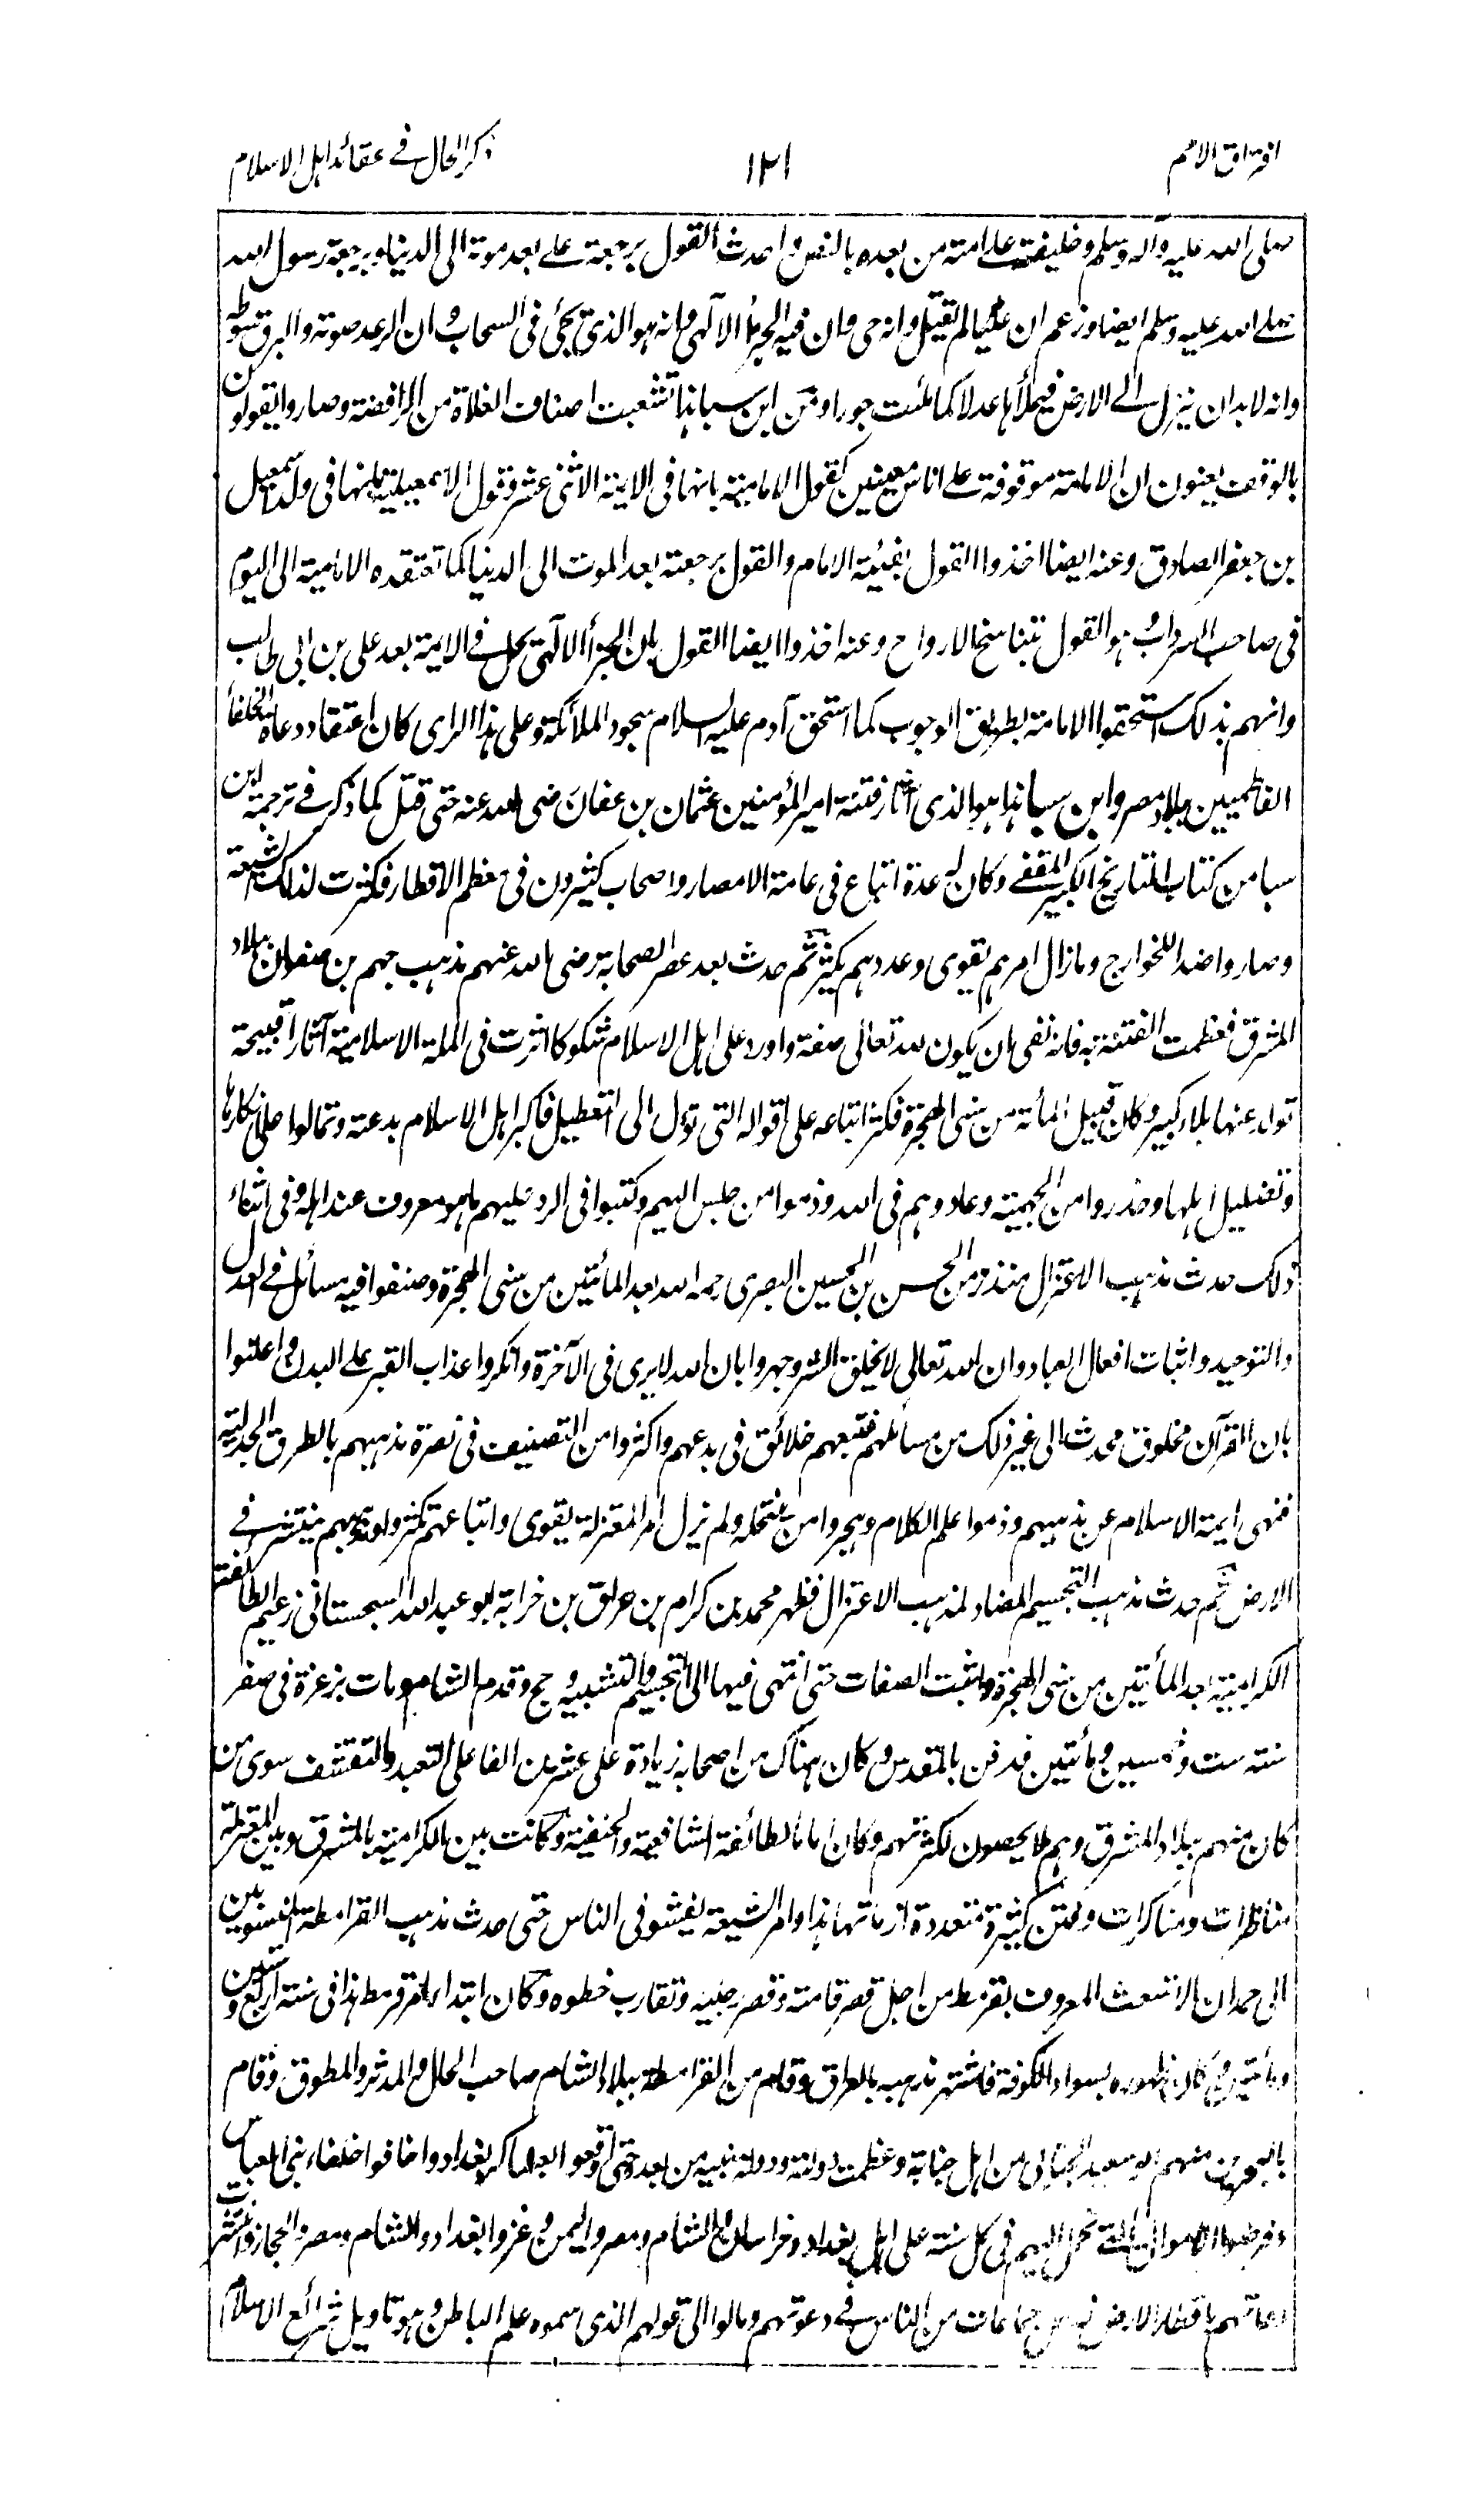 افتراق الامم
١٢١
ذكر الحال في عقائد اهل الاسلام
صلى الله عليه وآله وسلم وخليفته على امته من بعده بالنص واحدث القول برجعة علي بعد موته الى الدنيا وبرجعة رسول الله
صلى الله عليه وسلم ايضا وزعم ان عليا لم يقتل وانه حي وان فيه الجزأ الالهي وانه هو الذي يجئ في السحاب وان الرعد صوته والبرق سوطه
وانه لابد ان ينزل الى الارض فيملأها عدلا كما ملئت جورا ومن ابن سبا هذا تشعبت اصناف الغلاة من الرافضة وصاروا يقولون
بالوقف يعنون ان الامامة موقوفة على اناس معينين كقول الامامية بانها في الايمة الاثنى عشر وقول الاسمعيلية بانها في ولد اسمعيل
بن جعفر الصادق وعنه ايضا اخذوا القول بغيبة الامام والقول برجعته بعد الموت الى الدنيا كما تعتقده الامامية الى اليوم
في صاحب السرداب وهو القول بتناسخ الارواح وعنه اخذوا ايضا القول بان الجزأ الالهي يحل في الايمة بعد علي بن ابي طالب
وانهم بذلك استحقوا الامامة بطريق الوجوب كما استحق آدم عليه السلام سجود الملائكة وعلى هذا الراى كان اعتقاد دعاة الخلفأ
الفاطميين ببلاد مصر وابن سبا هذا هو الذي اثار فتنة امير المؤمنين عثمان بن عفان رضى الله عنه حتى قتل كما ذكر في ترجمة ابن
سبا من كتاب التاريخ الكبير المقفى وكان له عدة اتباع في عامة الامصار واصحاب كثيرون في معظم الاقطار فكثرت لذلك الشيعة
وصاروا ضدا للخوارج ومازال امرهم يقوى وعددهم يكثر ثم حدث بعد عصر الصحابة رضى الله عنهم مذهب جهم بن صفوان ببلاد
المشرق فعظمت الفتنة به فانه نفى ان يكون لله تعالى صفة واورد على اهل الاسلام شكوكا اثرت في الملة الاسلامية آثارا قبيحة
تولد عنها بلاء كبير وكان قبيل المأئة من سنى الهجرة فكثر اتباعه على اقواله التي تؤل الى التعطيل فاكبر اهل الاسلام بدعته وتمالوا على انكارها
وتضليل اهلها وحذروا من الجهمية وعادوهم في الله وذموا من جلس اليهم وكتبوا في الرد عليهم ما هو معروف عند اهله وفى اثناء
ذلك حدث مذهب الاعتزال منذ زمن الحسن بن الحسين البصرى رحمه الله بعد المأئتين من سنى الهجرة وصنفوا فيه مسائل في العدل
والتوحيد واثبات افعال العباد وان الله تعالى لا يخلق الشر وجهروا بان الله لا يرى في الآخرة وانكروا عذاب القبر على البدن واعلنوا
بان القرآن مخلوق محدث الى غير ذلك من مسائلهم فتبعهم خلائق في بدعهم واكثروا من التصنيف في نصرة مذهبهم بالطرق الجدلية
فنهى ايمة الاسلام عن مذهبهم وذموا علم الكلام وهجروا من ينتحله ولم يزل امر المعتزلة يقوى واتباعهم تكثر ومذهبهم ينتشر في
الارض ثم حدث مذهب التجسيم المضاد لمذهب الاعتزال فظهر محمد بن كرام بن عراق بن خرابة ابو عبد الله السجستانى زعيم الطائفة
الكرامية بعد المأئتين من سنى الهجرة واثبت الصفات حتى انتهى فيها الى التجسيم والتشبيه وحج وقدم الشام ومات بزغرة في صفر
سنة ست وخمسين ومأئتين فدفن بالمقدس وكان هناك من اصحابه زيادة على عشرين الفا على التعبد والتقشف سوى من
كان منهم ببلاد المشرق وهم لا يحصون لكثرتهم وكان اماما لطائفة الشافعية والحنفية وكانت بين الكرامية بالمشرق وبين المعتزلة
مناظرات ومناكرات وفتن كثيرة متعددة ازماتها هذا وامر الشيعة يفشو في الناس حتى حدث مذهب القرامطة المنسوبين
الى حمدان الاشعث المعروف بقرمط من اجل قصر قامته وقصر رجليه وتقارب خطوه وكان ابتداء امر قرمط هذا في سنة اربع وستين
ومأئتين وكان ظهوره بسواد الكوفة فاشتهر مذهبه بالعراق وقام من القرامطة ببلاد الشام صاحب الحال والمدثر والمطوق وقام
بالبحرين منهم ابو سعيد الجنابى من اهل جنابة وعظمت دولته ودولة بنيه من بعده حتى اوقعوا بعساكر بغداد واخافوا خلفاء بنى العباس
وفرضوا الاموال التي تحمل اليهم في كل سنة على اهل بغداد وخراسان والشام ومصر واليمن وغزوا بغداد والشام ومصر والحجاز وانتشرت
دعاتهم باقطار الارض فدخل جماعات من الناس في دعوتهم ومالوا الى قولهم الذي سموه علم الباطن وهو تاويل شرائع الاسلام